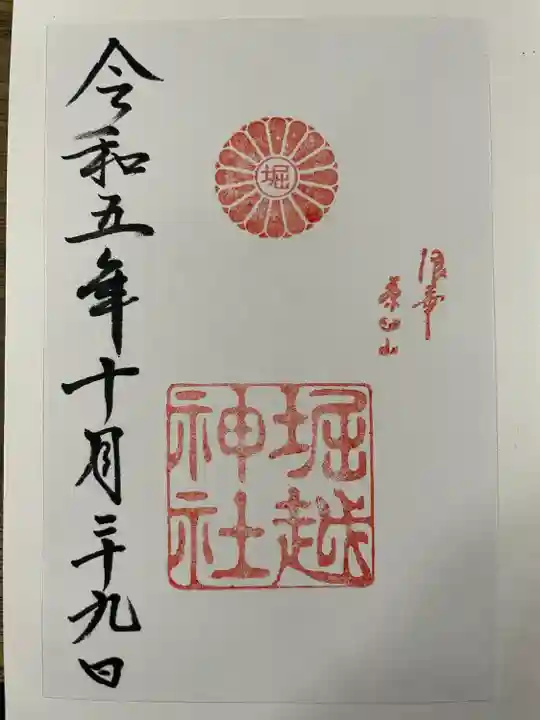 浪華
茶臼山
堀
堀越
神社
令和五年十月二十九日